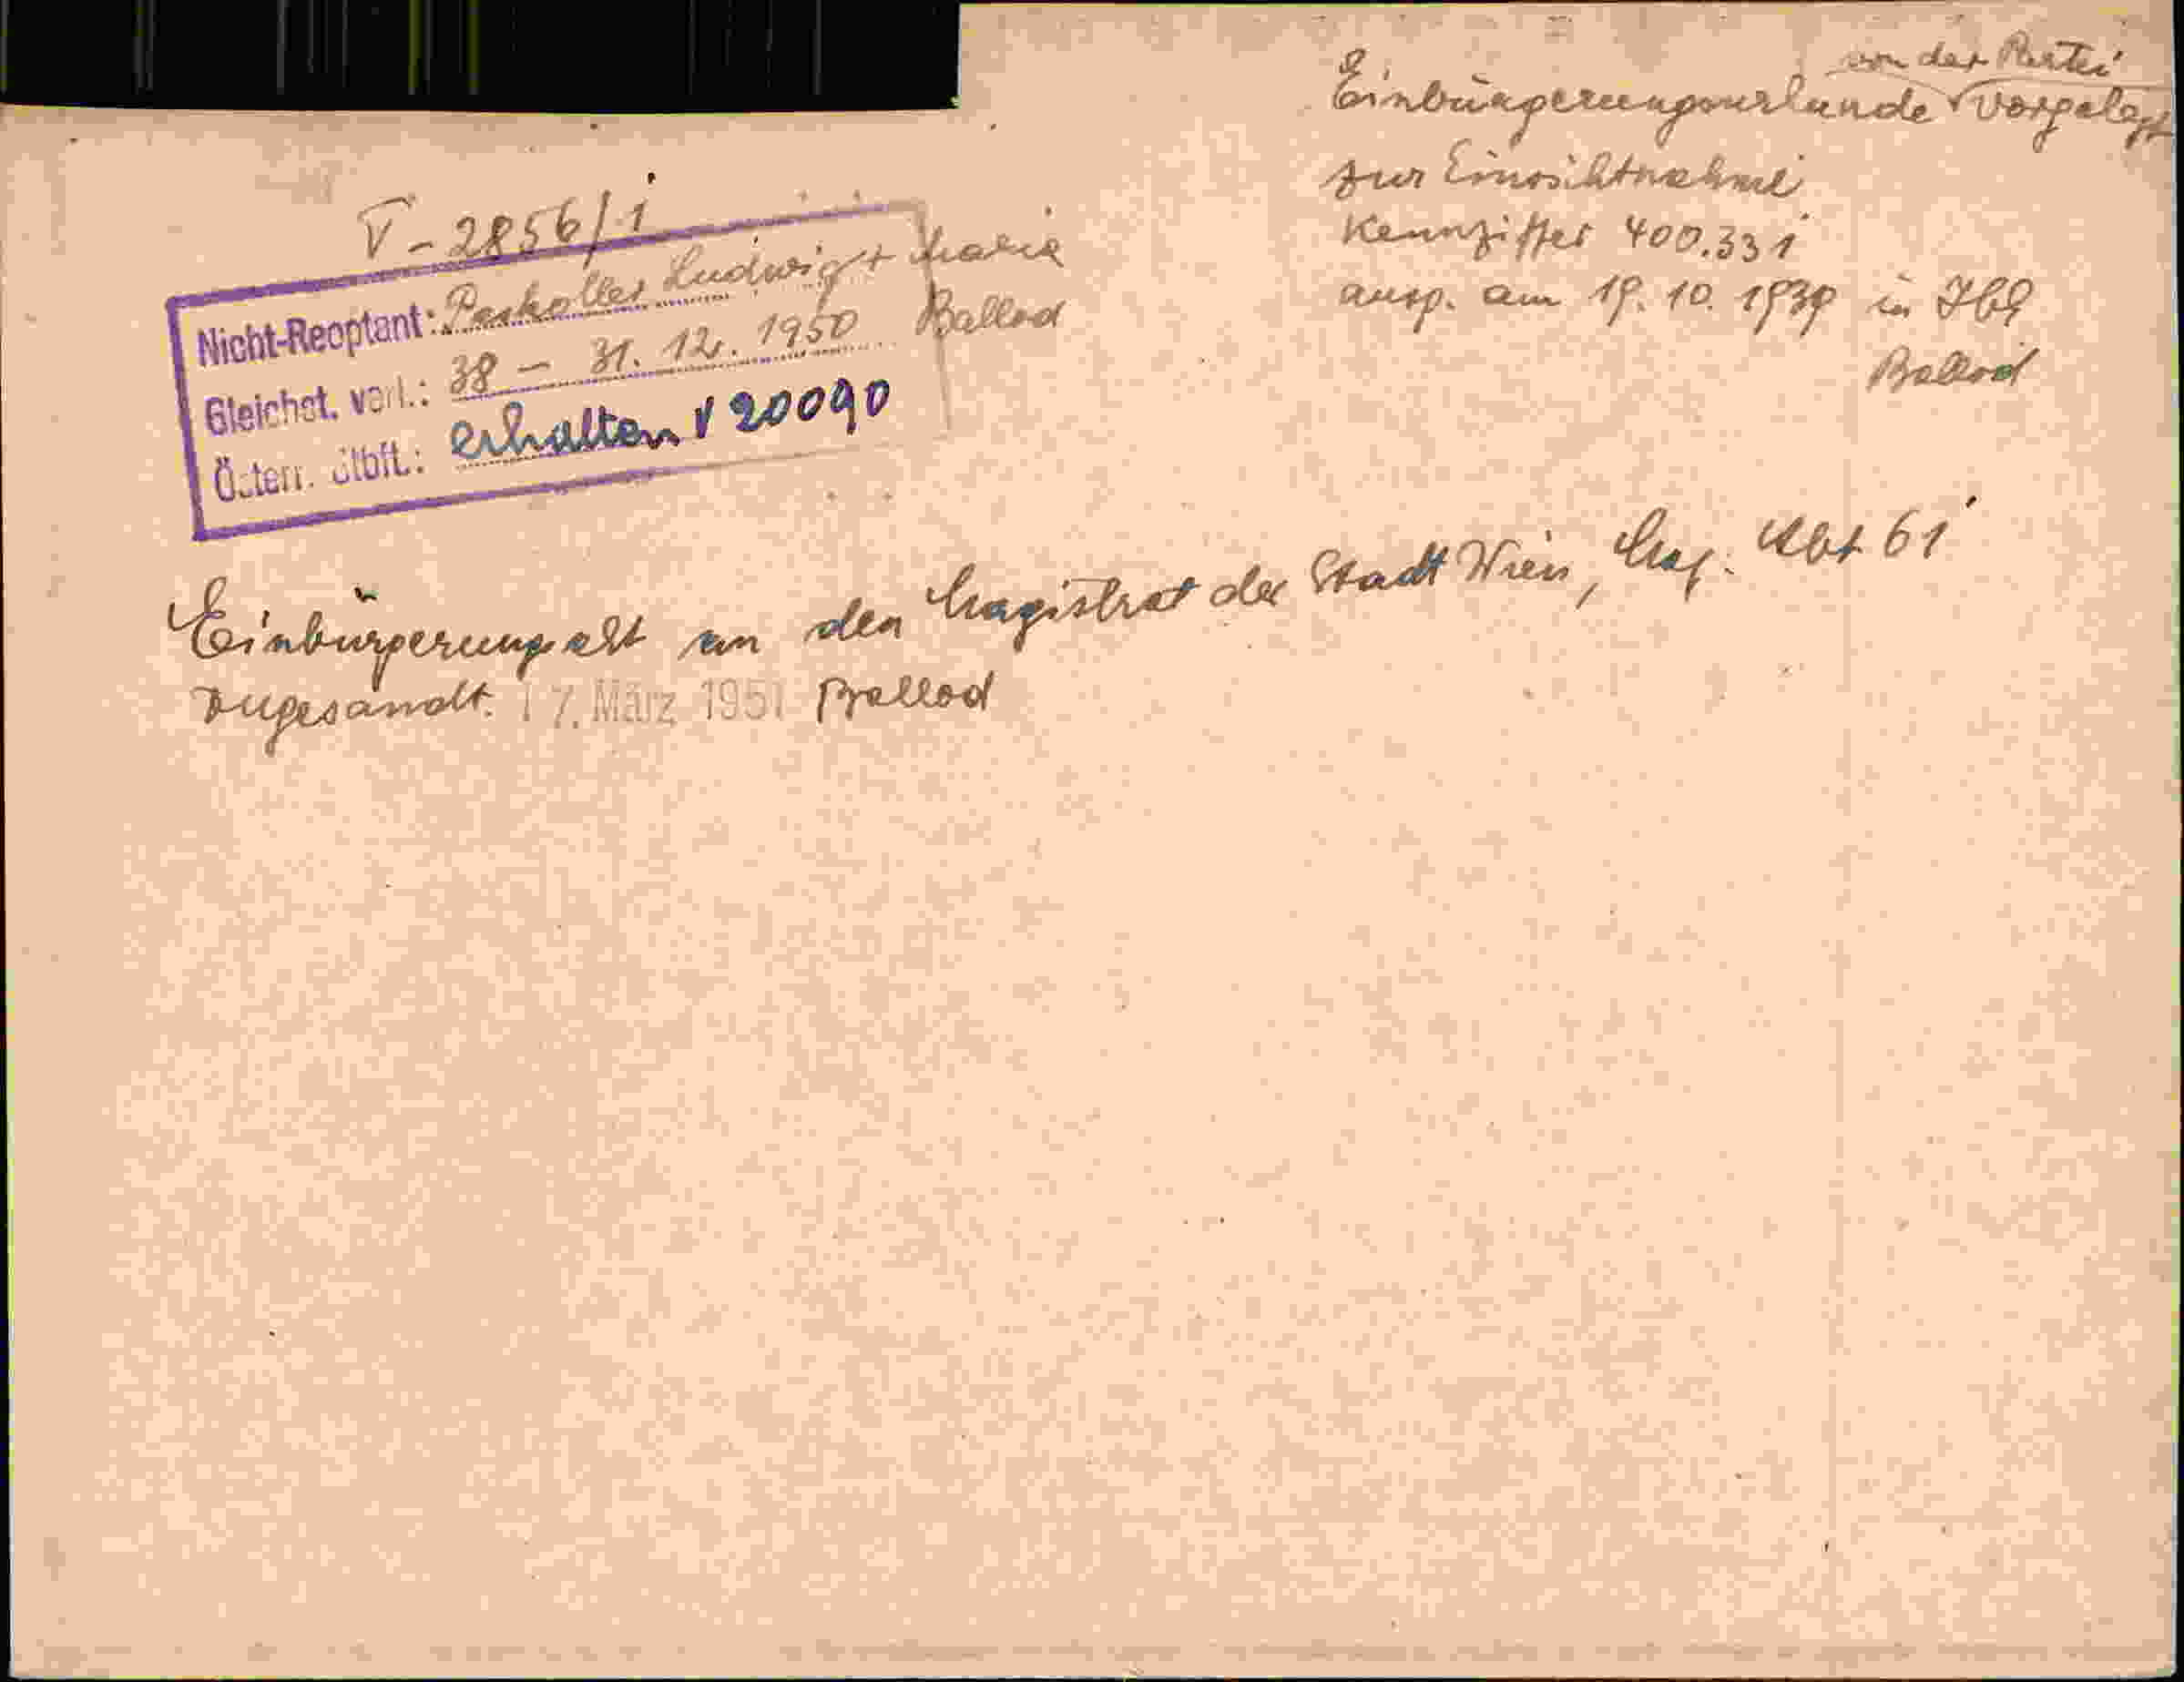 von der Partei
Einbürgerungsurkunde vorgelegt
zur Einsichtnahme
Kennziffer 400.331
ausg. am 19.10.1939 in Ibk
Ballod
V-2856/1
Nicht-Reoptant: Paskoller Ludwig + Maria
Gleichst. verl.: 38 - 31.12.1950 Ballod
Österr. Stbft.: erhalten V 20090
Einbürgerungsakt an den Magistrat der Stadt Wien, Mag. Abt 61
zugesandt. 17. März 1951 Ballod